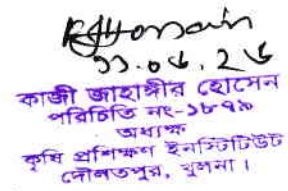 ১১.০৬.২৬
কাজী জাহাঙ্গীর হোসেন
পরিচিতি নং-১৮৭৯
অধ্যক্ষ
কৃষি প্রশিক্ষণ ইনস্টিটিউট
দৌলতপুর, খুলনা।